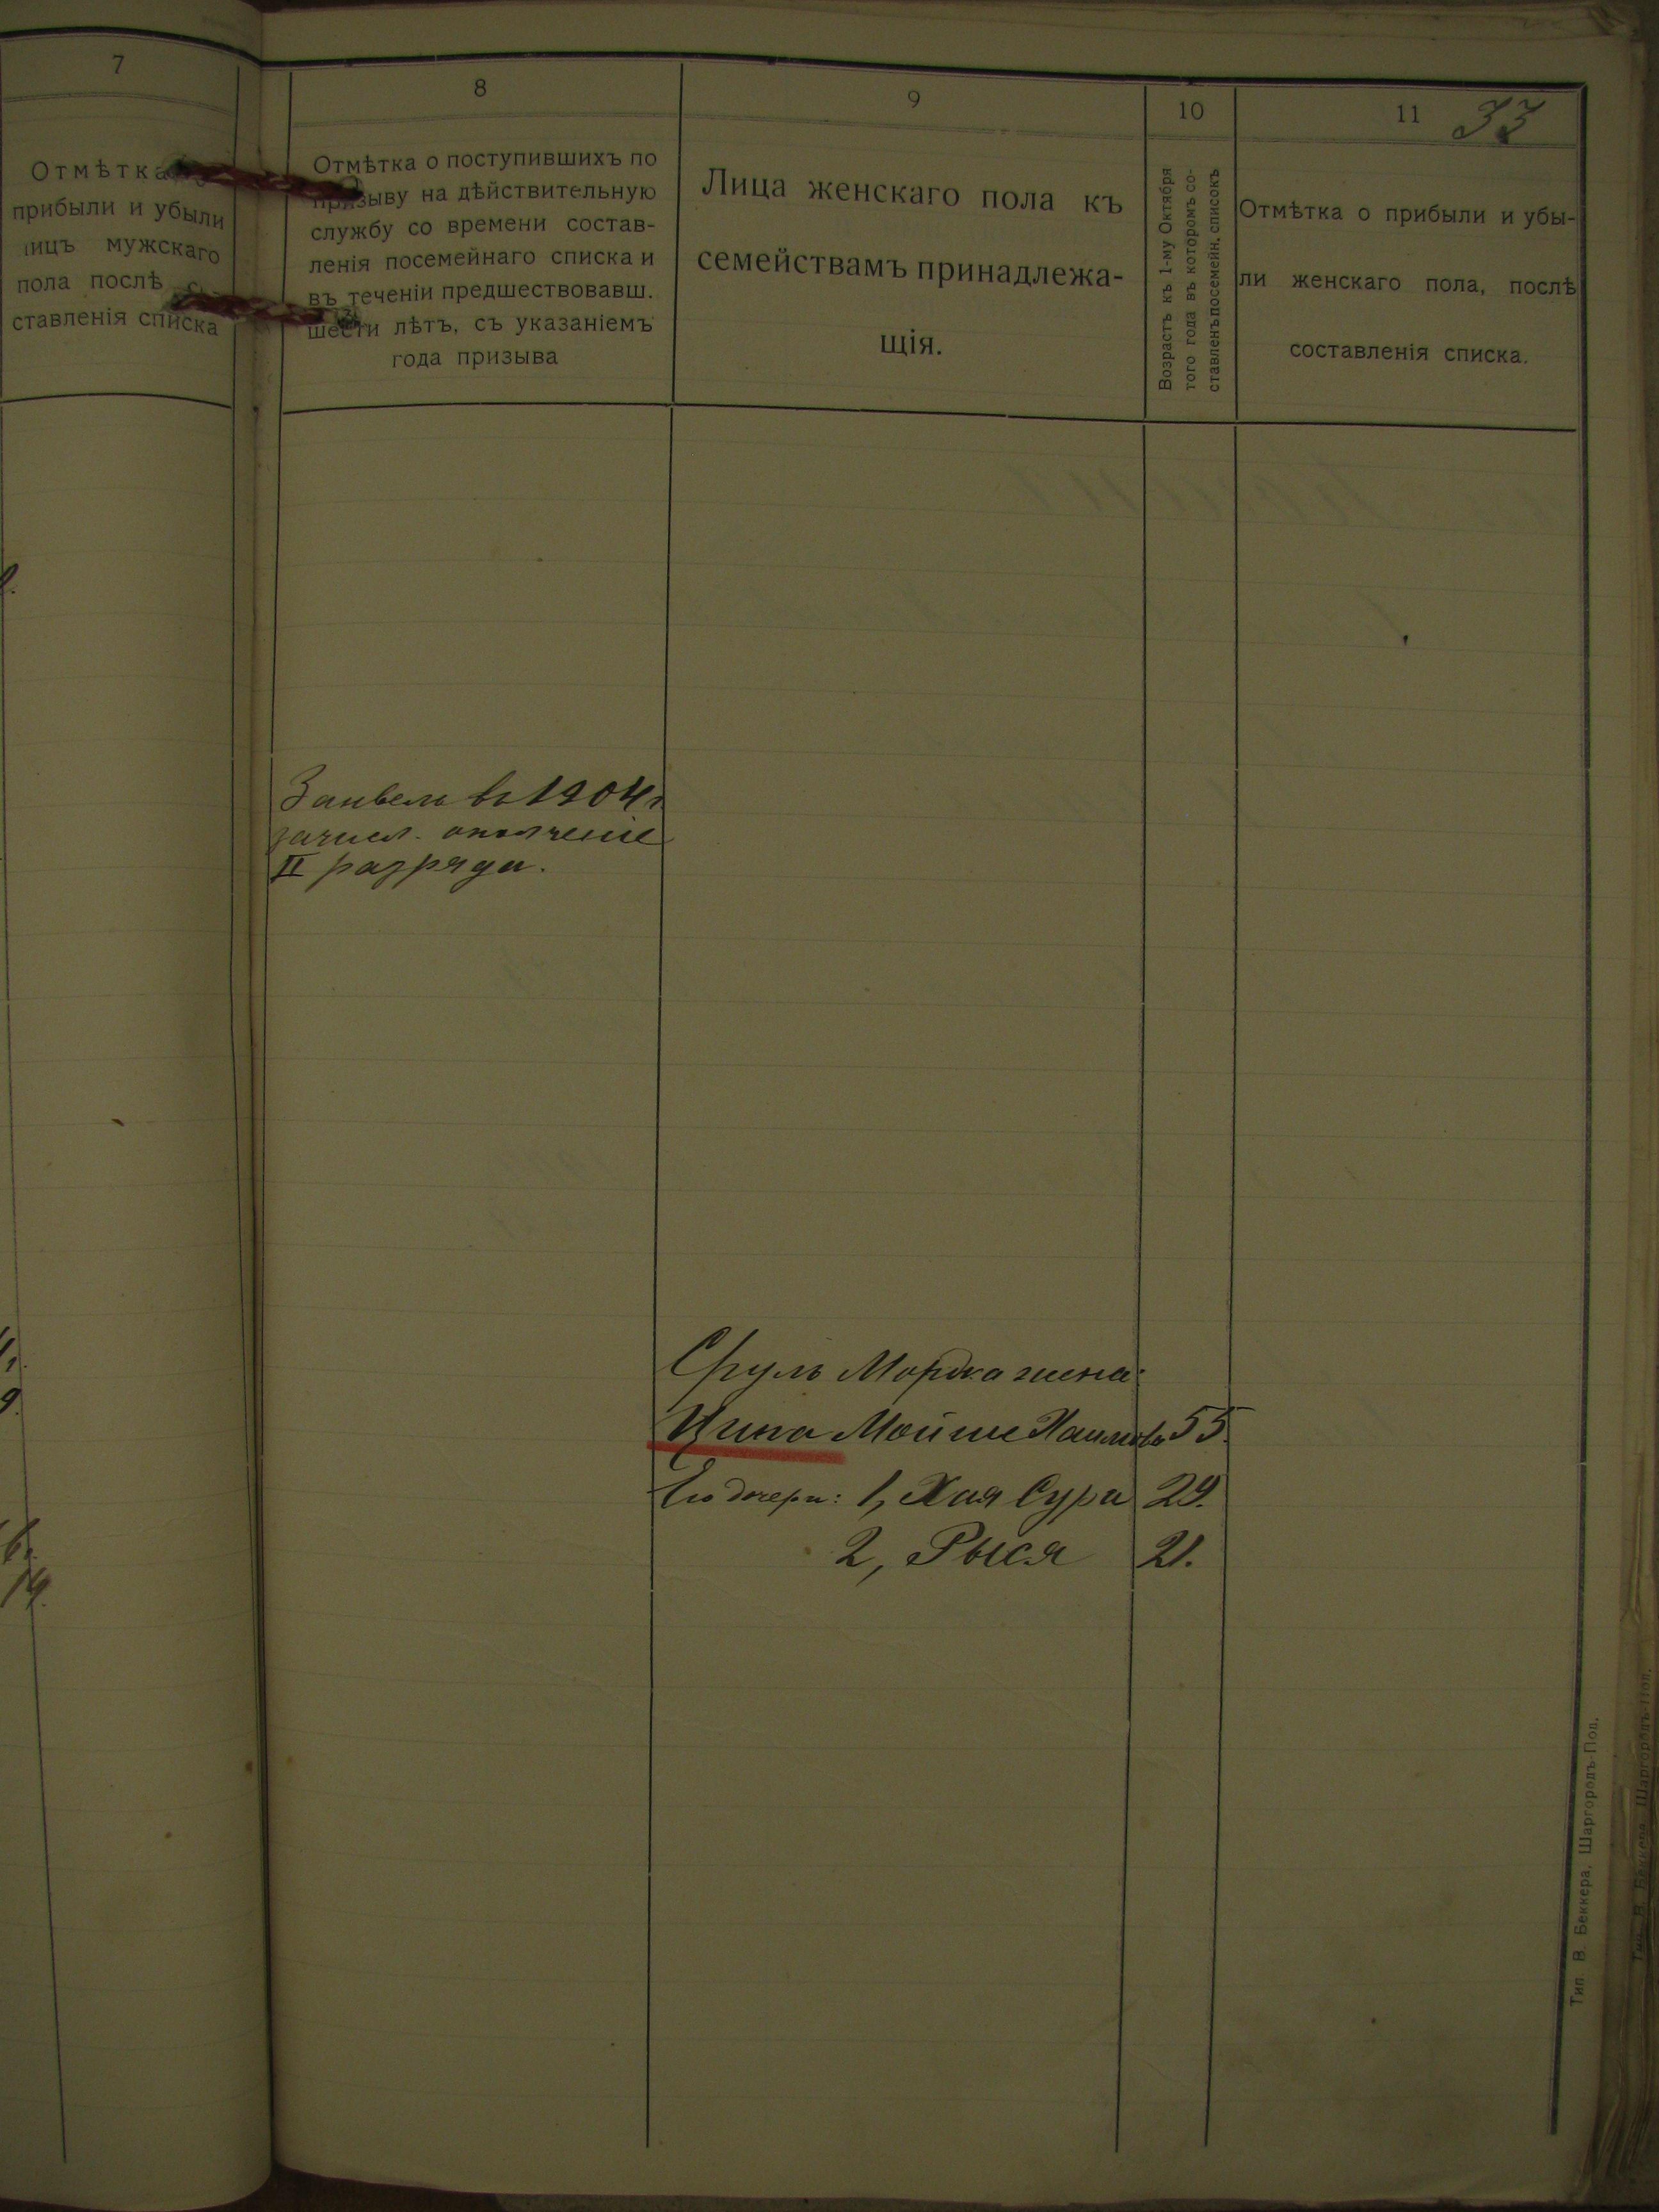 7
Отмѣтка
прибыли и убыли
лицъ мужскаго
пола послѣ со-
ставленія списка
8
Отмѣтка о поступившихъ по
призыву на дѣйствительную
службу со времени состав-
ленія посемейнаго списка и
въ теченіи предшествовавш.
шести лѣтъ, съ указаніемъ
года призыва
9
Лица женскаго пола къ
семействамъ принадлежа-
щія.
10
Возрастъ къ 1-му Октября
того года въ которомъ со-
ставленъ посемейн. списокъ
11
33
Отмѣтка о прибыли и убы-
ли женскаго пола, послѣ
составленія списка.
Занвель въ 1904 г.
зачисл. ополченіе
II разряда.
Сруль Мордка жена:
Цина Мойше Хаимовъ 55.
Его дочери: 1, Хая Сура 29.
2, Рыся 21.
Тип. В. Беккера, Шаргородъ-Под.
Тип. В. Беккера, Шаргородъ-Под.